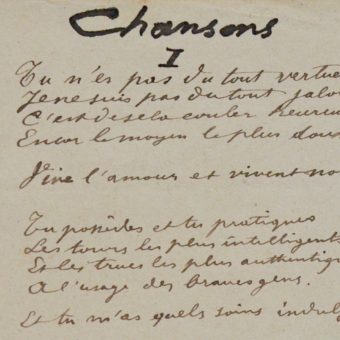 Chansons
I
Tu n'es pas du tout vertue
Je ne suis pas du tout jalou
C'est de se la couler heureu
Encor le moyen le plus doux
Vive l'amour et vivent no
Tu possèdes et tu pratiques
Les tours les plus intelligents
Et les trucs les plus authentiq
A l'usage des braves gens.
Et tu m'as quels soins indulg